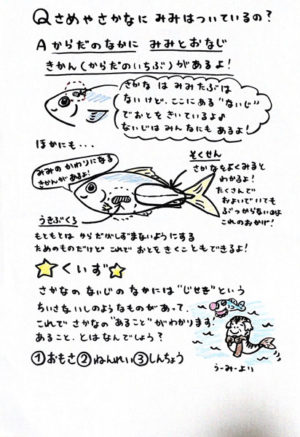 Qさめやさかなに みみはついているの?
A からだのなかに みみとおなじ
きかん(からだのいちぶ)があるよ!
さかな は みみたぶは
ないけど、ここにある"ないじ"
でおとをきいているよ♪
ないじはみんなにもあるよ!
ほかにも・・・
みみのかわりになる
きかんがあるよ!
そくせん
さかなをよくみると
わかるよ!
たくさんで
およいでいても
ぶつからないのは
これのおかげ!
うきぶくろ
もともとは からだがしずまないようにする
ためのものだけど これで おとをきくこともできるよ!
くいず
さかなの ないじの なかには"じせき"という
ちいさないしのようなものが あって、
これで さかなの"あること"が わかります。
あること、とはなんでしょう?
①おもさ ②ねんれい ③しんちょう
うーみーより